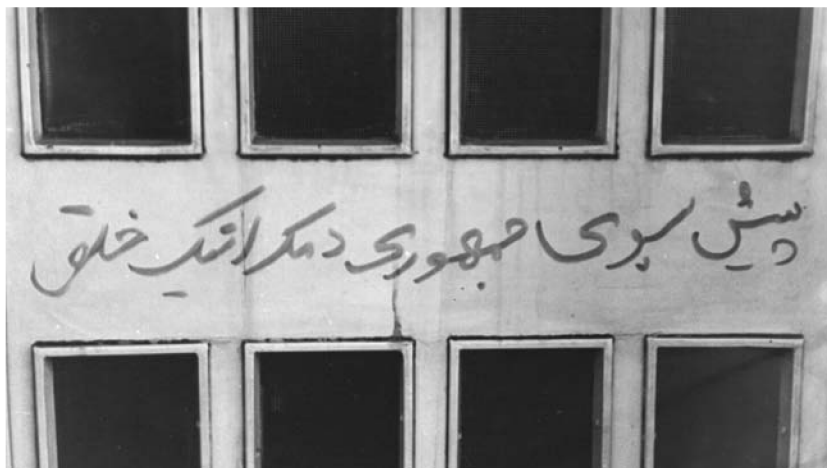 پیش بسوی جمهوری دمکراتیک خلق